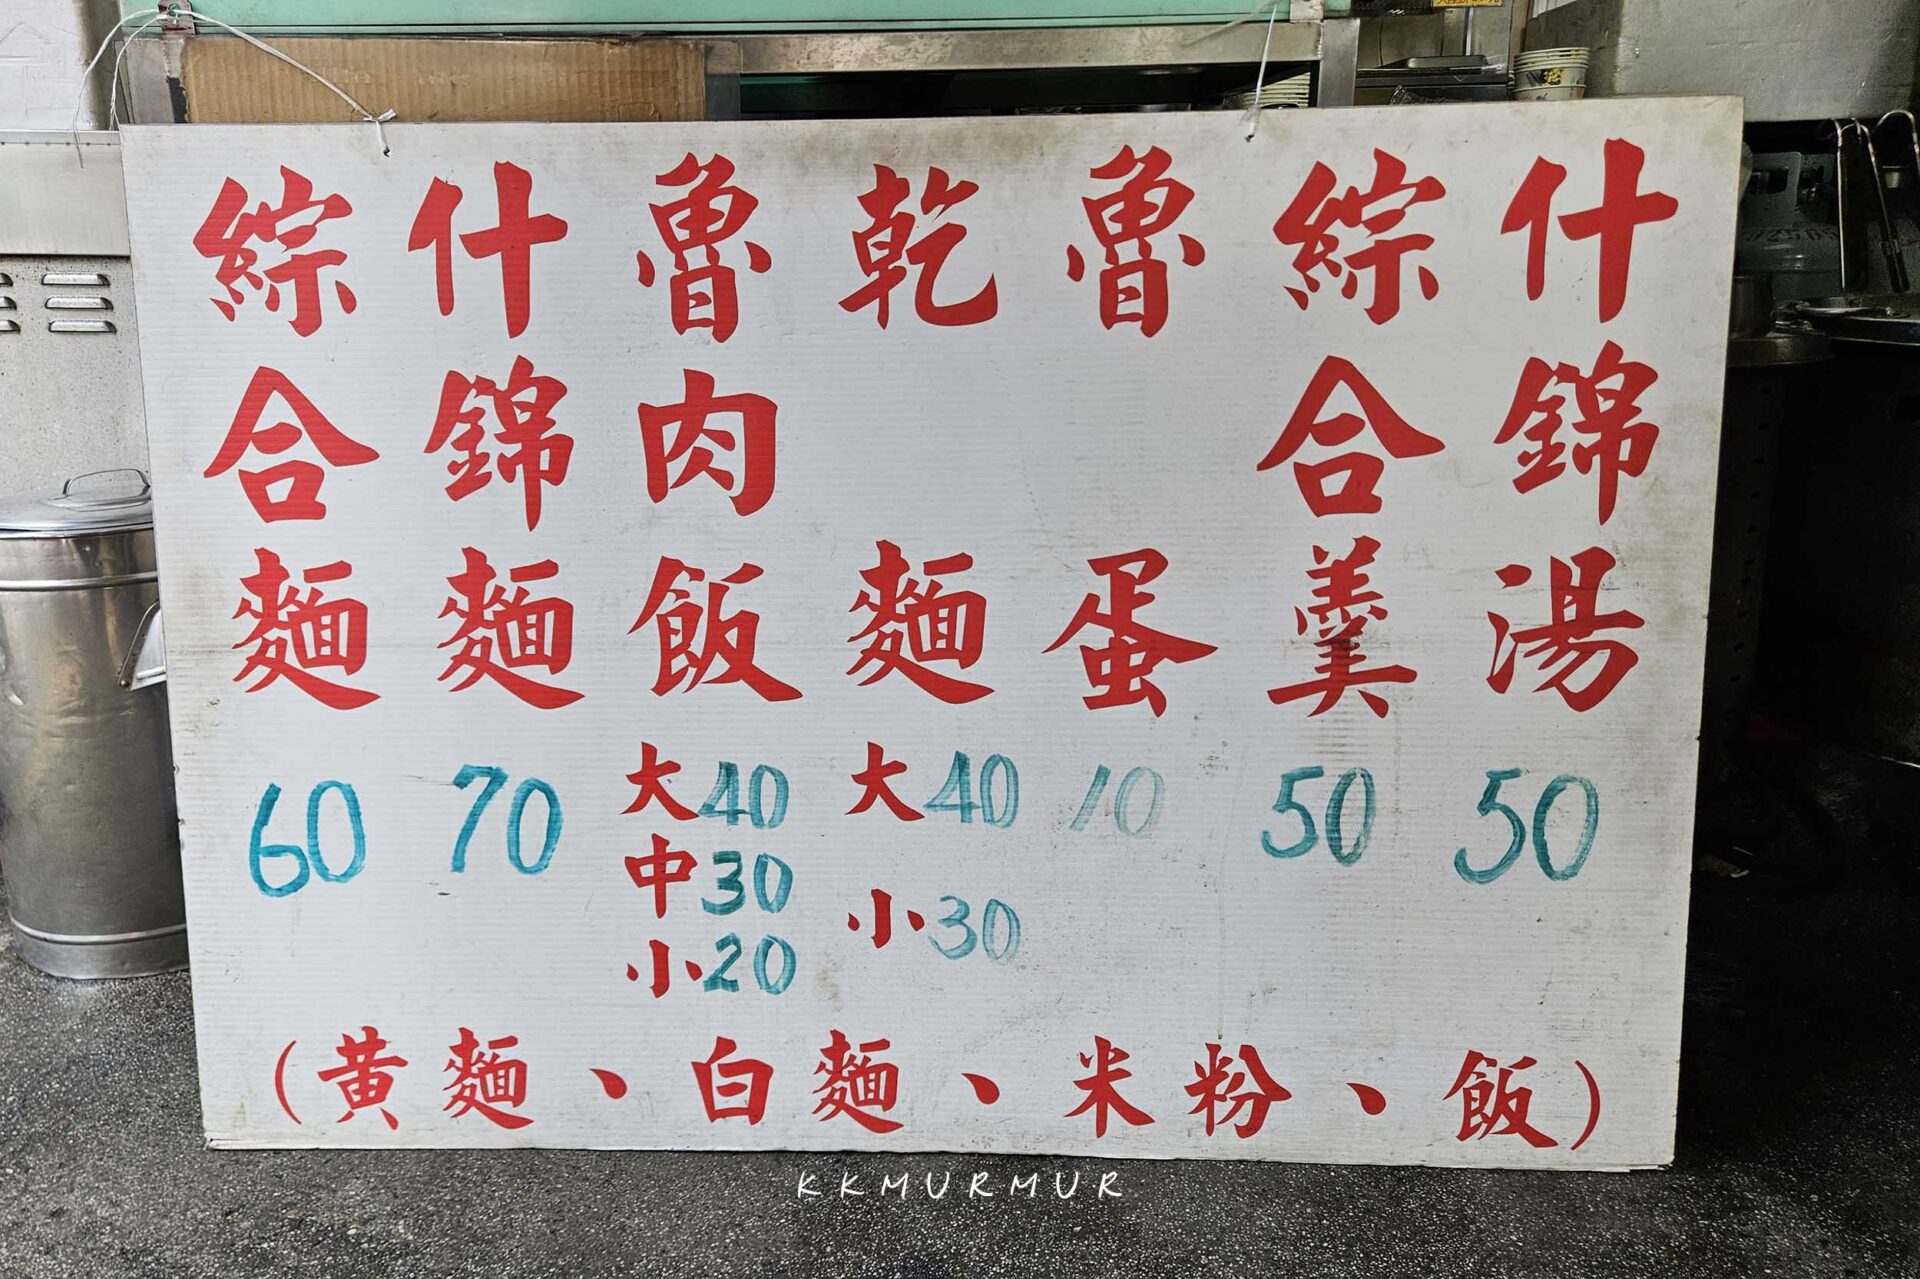 綜合麵 60
什錦麵 70
魯肉飯 大40 中30 小20
乾麵 大40 小30
魯蛋 10
綜合羹 50
什錦湯 50
(黃麵、白麵、米粉、飯)
KKMURMUR